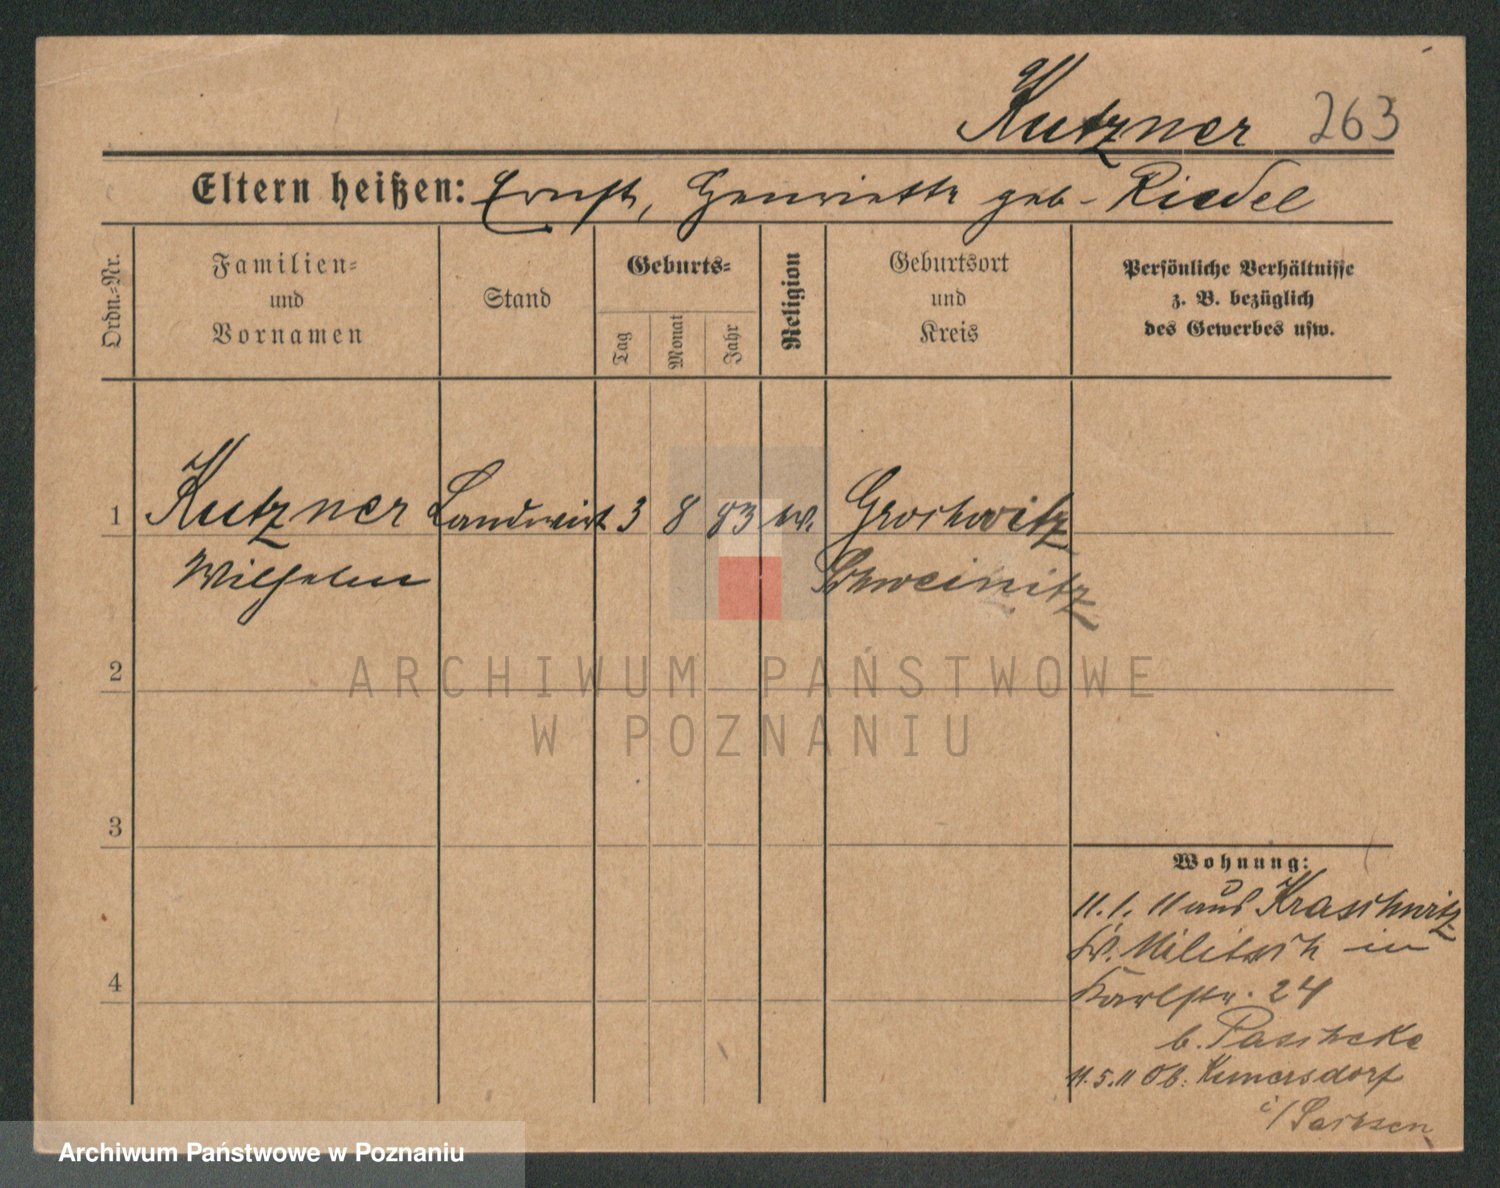 Kutzner 263
Eltern heißen: Ernst, Henriette geb. Riedel
Ordn.-Nr.
Familien-
und
Vornamen
Stand
Geburts-
Tag
Monat
Jahr
Religion
Geburtsort
und
Kreis
Persönliche Verhältnisse
z. B. bezüglich
des Gewerbes usw.
1 Kutzner Landwirt 3 8 83 ev. Grochwitz
Wilhelm Schweinitz
2
3
4
Wohnung:
11.1.11 aus Kraschnitz
Kr. Militsch in
Karlstr. 24
b. Paschke
11.5.11 Ob: Kunersdorf
i/Sachsen
ARCHIWUM PAŃSTWOWE
W POZNANIU
Archiwum Państwowe w Poznaniu